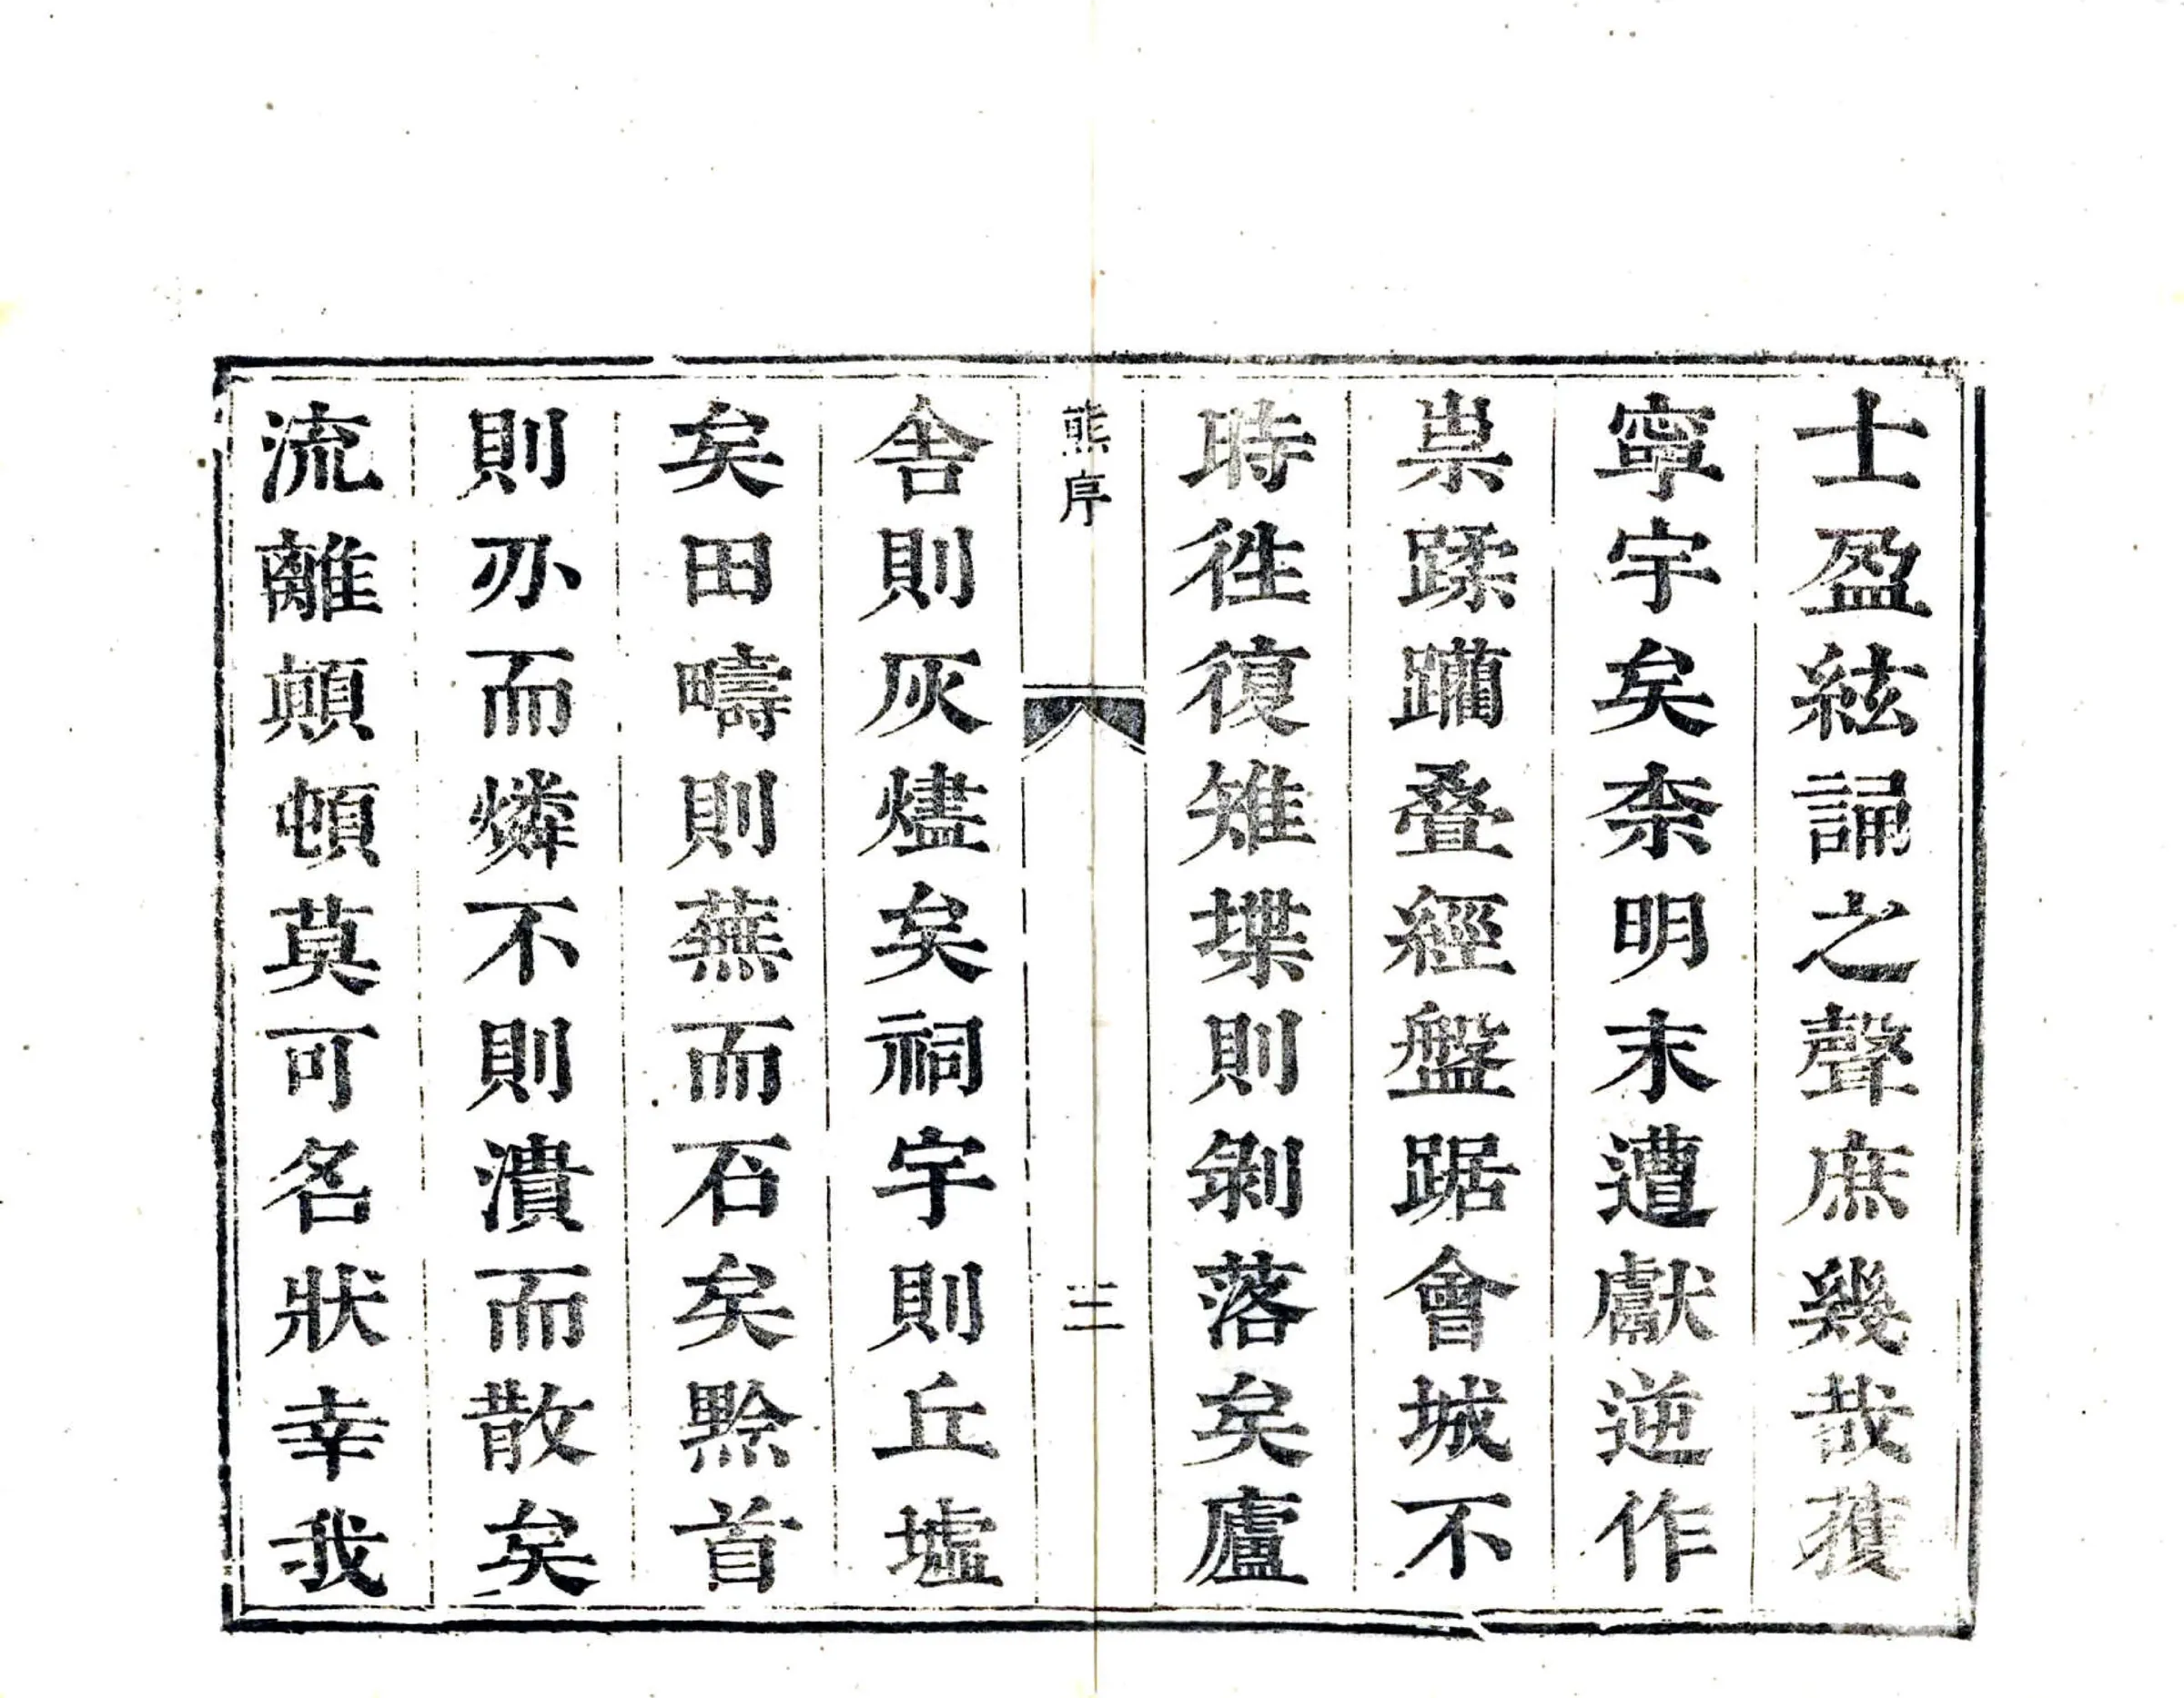 士盈絃誦之聲庶幾哉獲
寧宇矣柰明末遭獻逆作
祟蹂躪叠經盤踞會城不
時徃復雉堞則剝落矣廬
熊序
三
舍則灰燼矣祠宇則丘墟
矣田疇則蕪而石矣黔首
則刅而燐不則潰而散矣
流離顛頓莫可名狀幸我